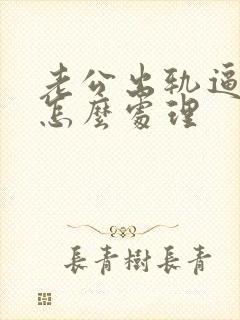 老公出轨逼
怎麼處理
長青樹長青